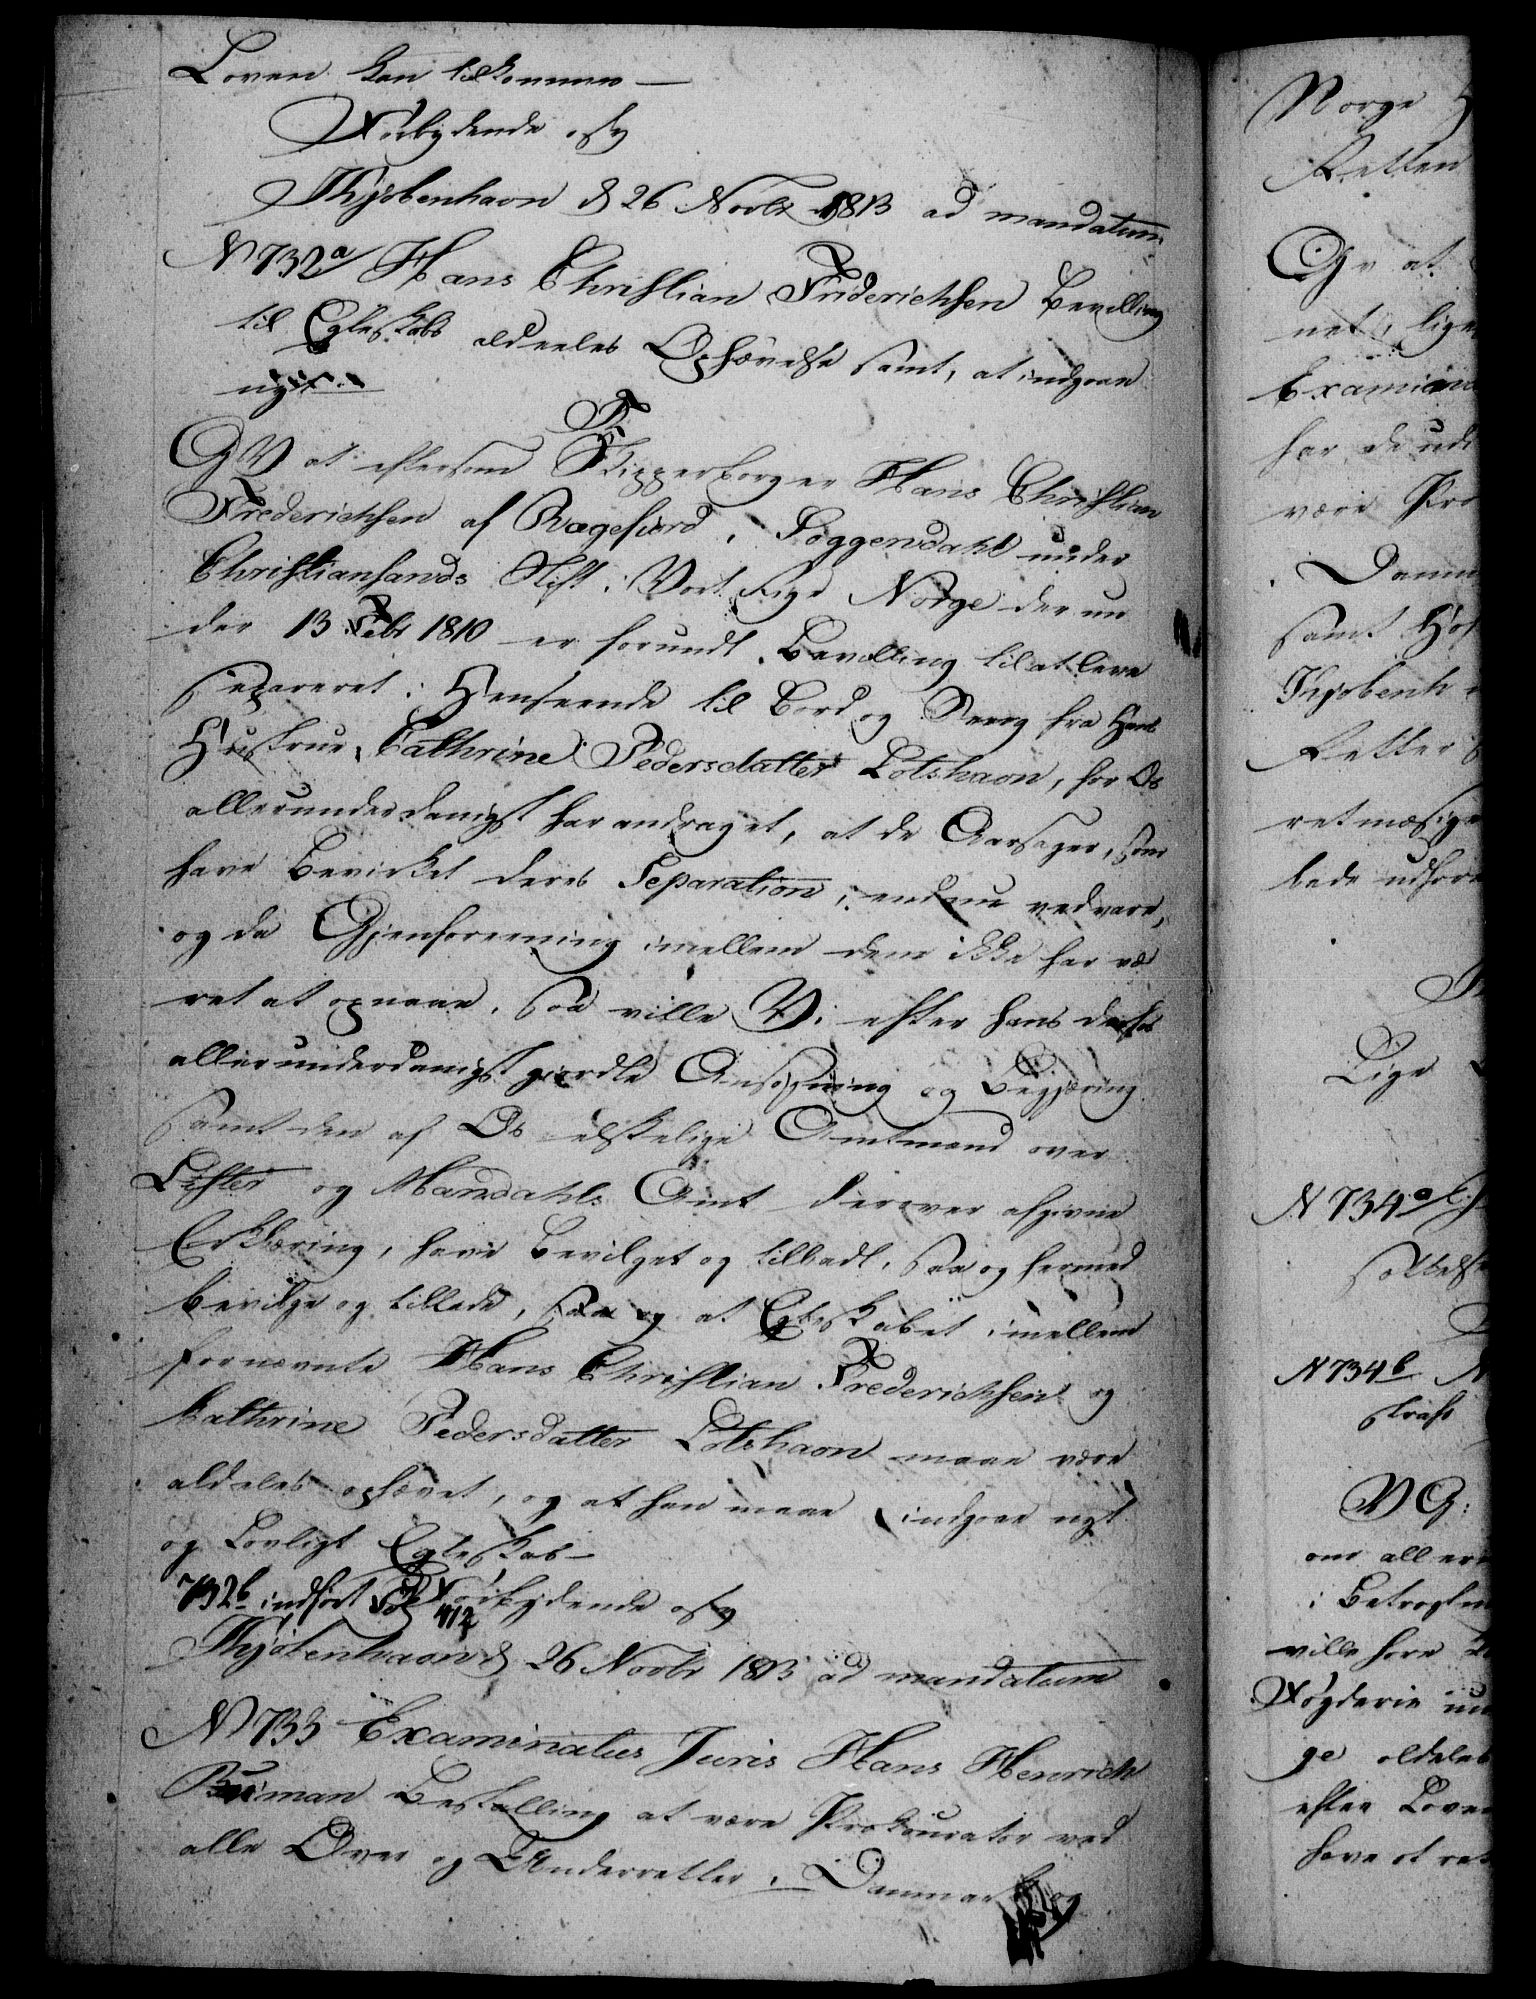 Loven kan tilkomme —
Forbydende osv
Kjøbenhavn d 26 Novbr 1813 ad mandatum
N 732a/ Hans Christian Friderichsen Bevilling
til Egteskabs aldeeles Ophævelse samt, at indgaae
nyt —
GV at eftersom Skipperborger Hans Christian
Frederichsen af Rægefiord i Soggendahl under
Christiansands Stift i Vort Rige Norge der un
der 13 Febr 1810 er forundt Bevilling til at leve
separeret i Henseende til Bord og Seng fra Hans
Hustrue, Cathrine Pedersdatter Lotshavn, for Os
allerunderdanigst har andraget, at de Aarsager, som
have bevirket deres Separation, endnu vedvare,
og da Gjenforeening imellem dem ikke har væ
ret at opnaae, saa ville Vi efter hans derfor
allerunderdanigst giordte Ansøgning og Begjæring
samt den af Os elskelige Amtmand over
Lister og Mandahls Amt derover afgivne
Erklæring, have bevilget og tilladt, saa og hermed
bevilge og tillade, saa og at Egteskabet imellem
fornævnte Hans Christian Frederichsen og
Cathrine Pedersdatter Lotshavn maae være
aldeles ophævet, og at han maae indgaae nyt
og Lovligt Egteskab —
732b indført Fol 412 Forbydende osv
Kjøbenhavn d 26 Novbr 1813 ad mandatum
N 733 Examinatus Juris Hans Henrich
Buiman Bestalling at være Prokurator ved
alle Over og Underretter i Danmark og
Norge
Retten
Gv at
net, lige
Examina
har de ud
være Pro
Danm
samt Høi
Kjøbenh
Retter
retmæsige
lede udføre
Lige
N 734a
N 734b
straf
VG:
om aller
i Betragtn
ville have
Fogderie un
ge aldeles
efter Loven
have at ret